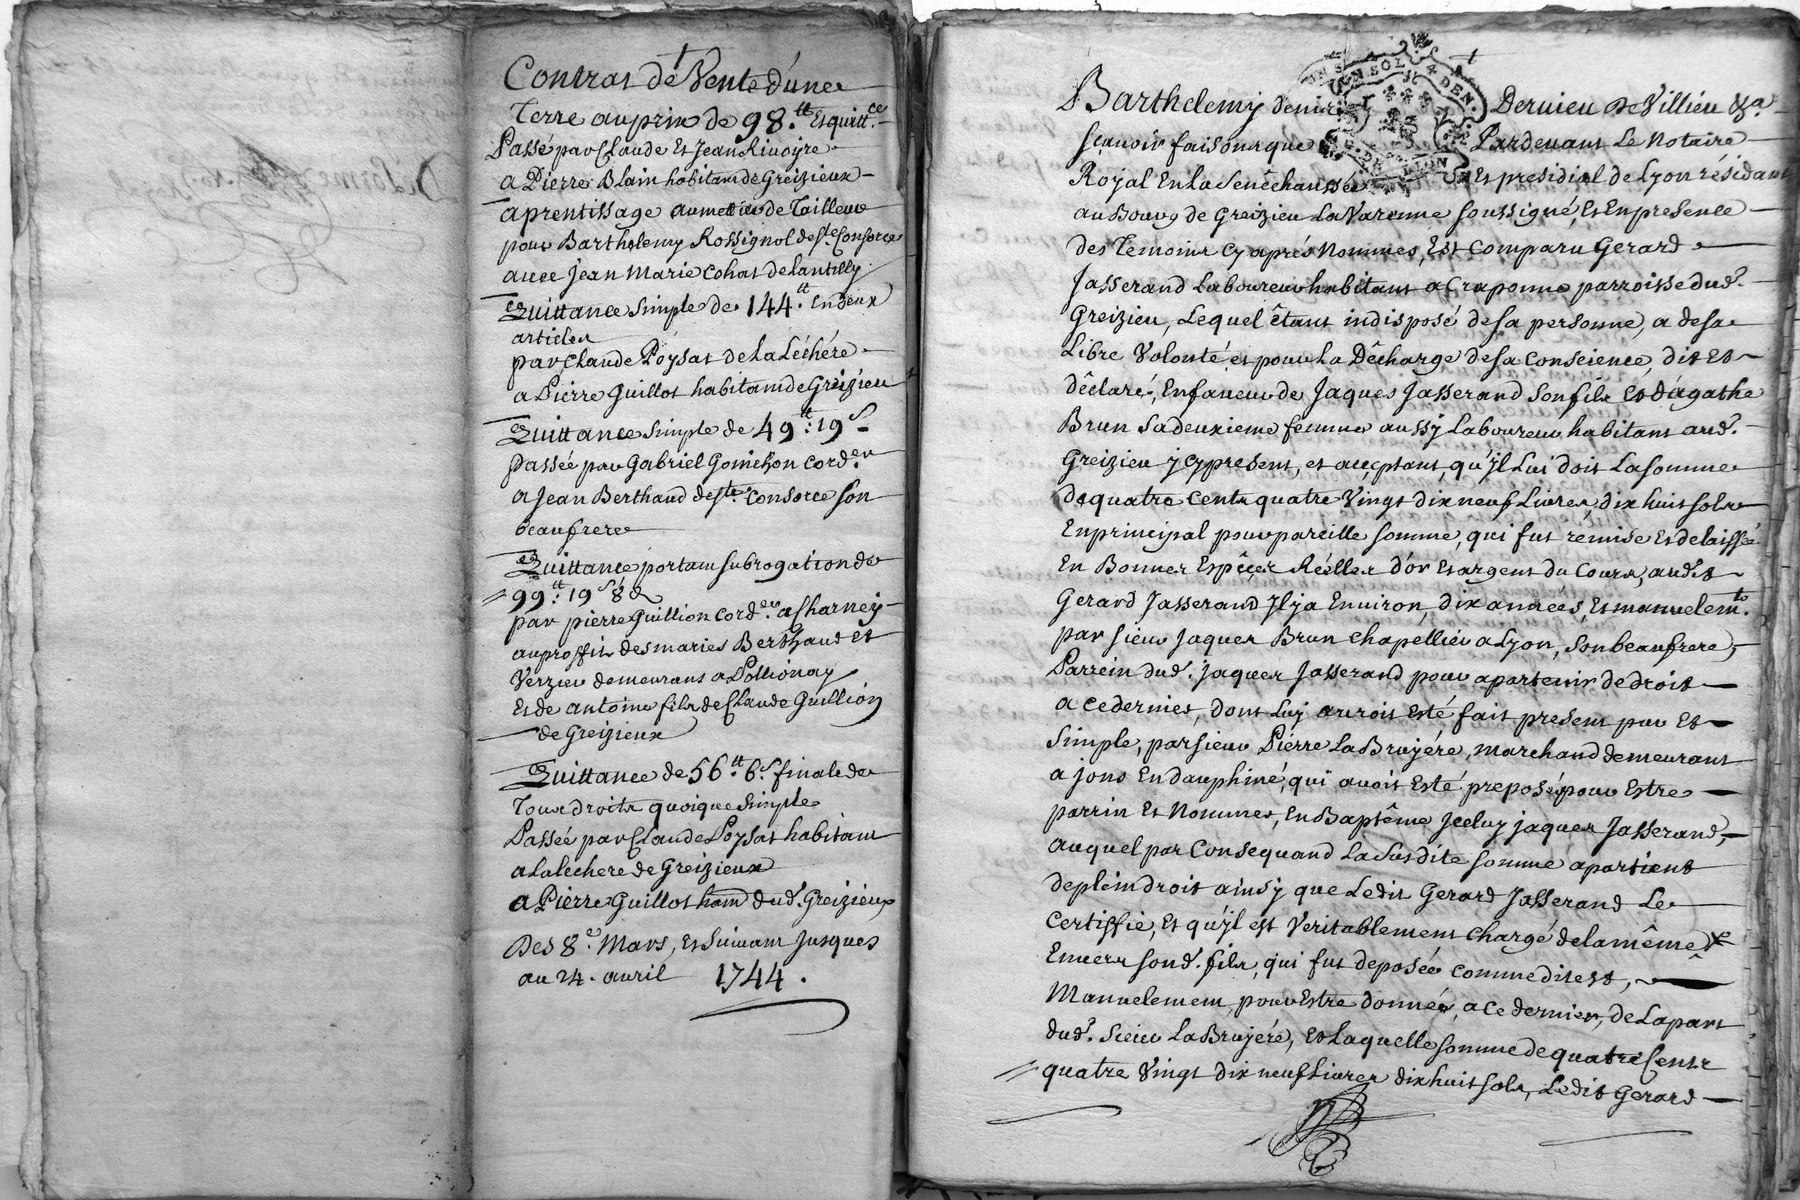 Contrat de Vente d'une
Terre au prix de 98.tt Et quitt.ce
Passé par Claude Et Jean Rivoyre
a Pierre Blain habitant de Greizieux
aprentissage au metier de Tailleur
pour Barthelemy Rossignol de Ste Consorce
avec Jean Marie Cohat de lantilly
Quittance simple de 144.tt En deux
articles
par Claude Poysat de La Léchére
a Pierre Guillot habitant de Greizieu
Quittance simple de 49.tt 19.s
passée par Gabriel Cord.er
a Jean Berthaud de Ste Consorce son
beaufrere
Quittance portant subrogation de
99.tt 19.s 8.d
par pierre Guillion Cord.er a Charney
au proffit des maries Berthaut et
Verzieu demeurans a Pollionay
Et de antoine fils de Claude Guillion
de Greizieux
Quittance de 56.tt 6.s finale de
Tous droits quoique simple
Passée par Claude Poysat habitant
a La lechere de Greizieux
a Pierre Guillot ham dud. Greizieux
Des 8.e Mars, Et suivant Jusques
au 24. avril 1744.
Barthelemy denis Dervieu De Villieu &a
sçavoir faisons que Pardevant Le Notaire
Royal En la Senêchaussée Et presidial de Lyon résidant
au Bourg de Greizieu La Varenne soussigné, Et En presence
des Temoins Cy aprés Nommés, Est Comparu Gerard
Jasserand Laboureur habitant a Craponne parroisse dud.
Greizieu, Lequel êtant indisposé de sa personne, a de sa
Libre Volonté, et pour La Dêcharge de sa Conscience, dit Et
dêclaré, En faveur de Jaques Jasserand son fils Et d'agathe
Brun sa deuxieme femme aussy Laboureur habitant aud.
Greizieu jcy present, et acceptant, qu'jl Lui doit La somme
de quatre Cents quatre Vingt dix neuf Livres, dix huit sols
En principal pour pareille somme, qui fut remise Et delaissée
En Bonnes Espêçes Réelles d'or Et argent du Cours, audit
Gerard Jasserand Jl ya Environ, dix années, Et manuelem.t
par sieur Jaques Brun Chapellier a Lyon, son beaufrere,
Parrein dud. Jaques Jasserand pour apartenir de droit
a ce dernier, dont Luy auroit Esté fait present pur Et
simple, par sieur Pierre La Bruyére, marchand demeurant
a jons En dauphiné, qui avoit Esté preposé pour Estre
parrin Et Nommer, En Baptême Jceluy jaques Jasserand,
auquel par Consequand La susdite somme apartient
de plein droit ainsy que Ledit Gerard Jasserand Le
Certiffie, Et qu'jl est Veritablement Chargé de la même
Envers sond. fils, qui fut deposée comme dit est,
Manuelement, pour Estre donnée, a ce dernier, de La part
dud. Sieur La Bruyére, Et Laquelle somme de quatre Cents
quatre Vingt dix neuf Livres dix huit sols, Ledit Gerard